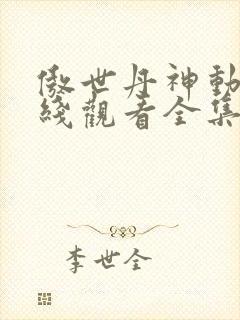 傲世丹神動
綫觀看全集
李世全